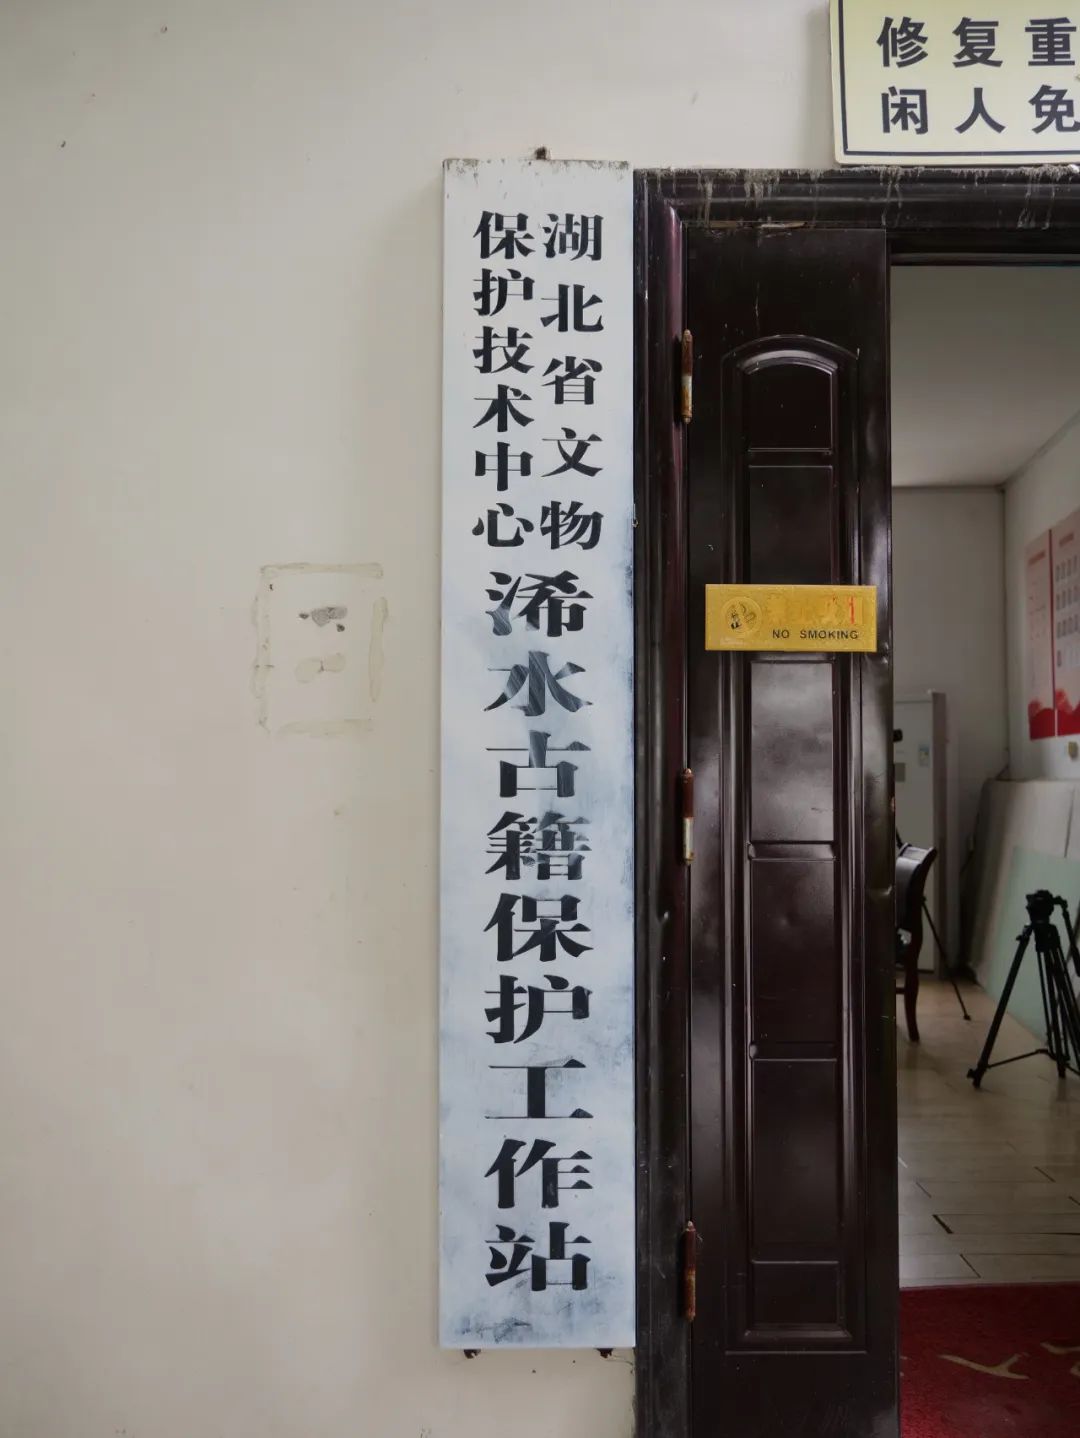 修复重
闲人免
湖北省文物
保护技术中心
浠水古籍保护工作站
NO SMOKING